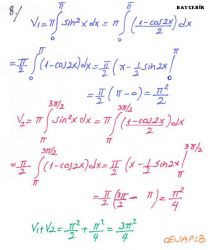 BAY CEBİR
8.) V₁ = π∫₀^π sin²x dx = π∫₀^π (1-cos2x)/2 dx
= π/2 ∫₀^π (1-cos2x)dx = π/2 (x - 1/2 sin2x |₀^π
= π/2 (π-0) = π²/2
V₂ = π∫_π^{3π/2} sin²x dx = π∫_π^{3π/2} (1-cos2x)/2 dx
= π/2 ∫_π^{3π/2} (1-cos2x)dx = π/2 (x - 1/2 sin2x |_π^{3π/2}
= π/2 (3π/2 - π) = π²/4
V₁+V₂ = π²/2 + π²/4 = 3π²/4
CEVAP:B